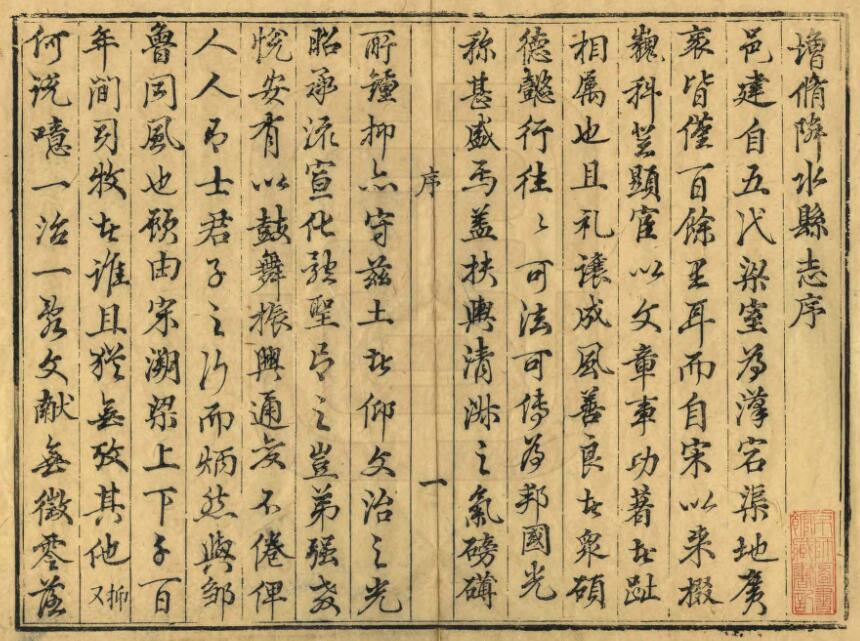 增脩隣水縣志序
邑建自五代梁室為漢宕渠地廣
袤皆僅百餘里耳而自宋以来掇
巍科登顯宦以文章事功著者趾
相属也且礼讓成風善良者衆碩
德懿行往々可法可傳為邦國光
称甚盛焉盖扶輿清淑之氣磅礴
序
一
所鍾抑亦守茲土者仰文治之光
昭承流宣化聖之豈弟强教
悅安有以鼓舞振興通变不倦俾
人人士君子之行而炳然與鄒
魯同風也顧由宋溯梁上下千百
年間司牧者誰且猶無攷其他抑又
何说噫一治一乱文献無徵零落